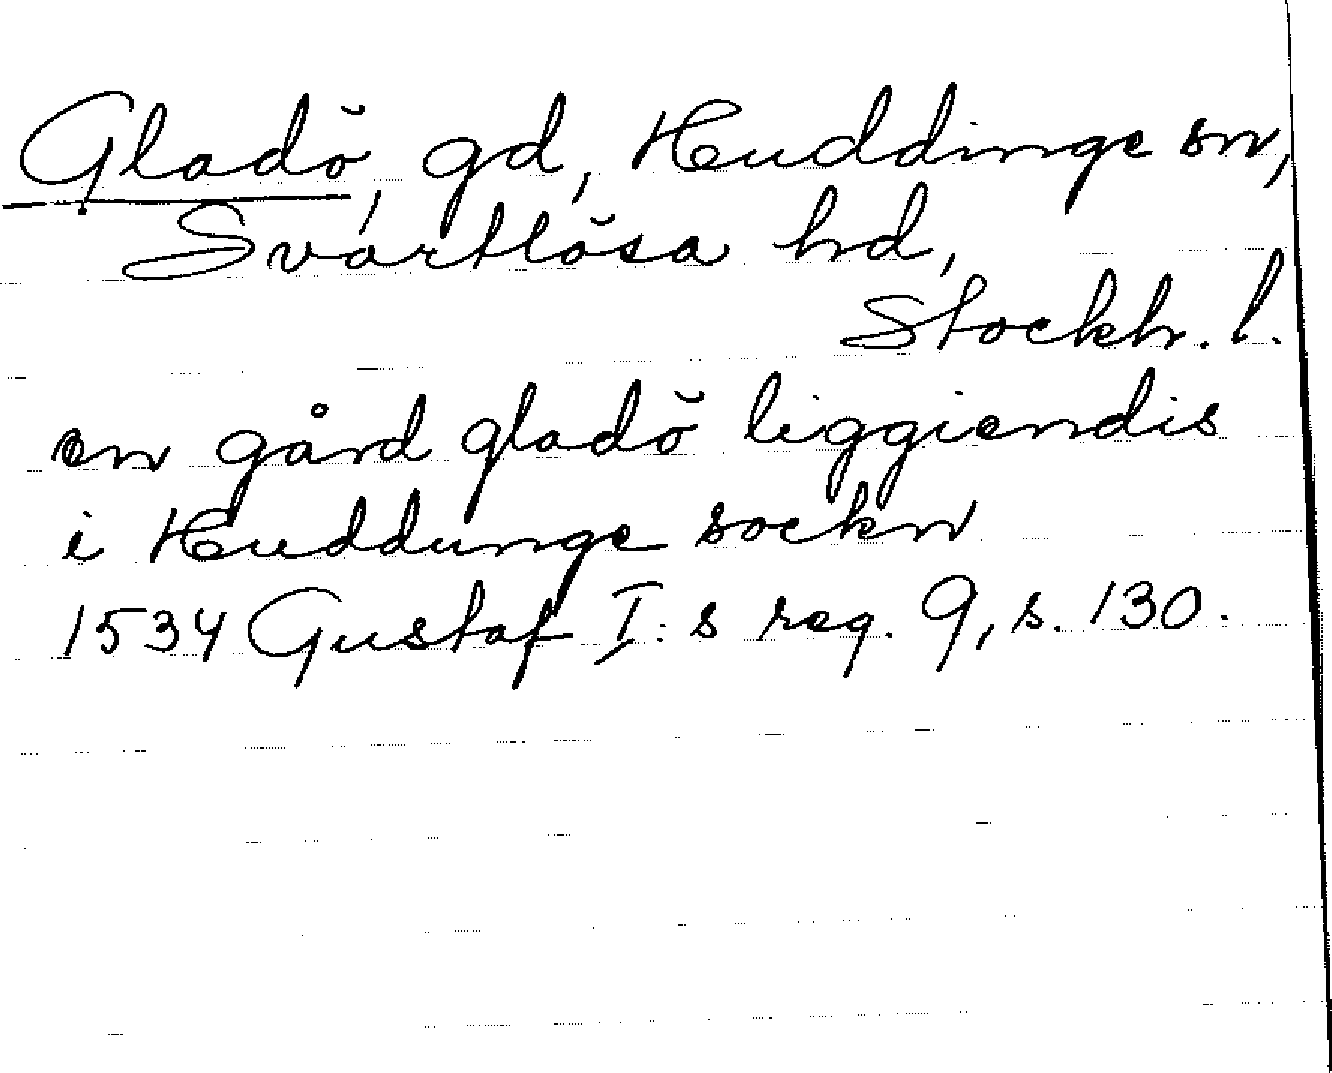 Gladö, gd, Huddinge sn,
Svartlösa hd,
Stockh. l.
en gård gladö liggiendis
i Huddunge sockn
1534 Gustaf I:s reg. 9, s. 130.